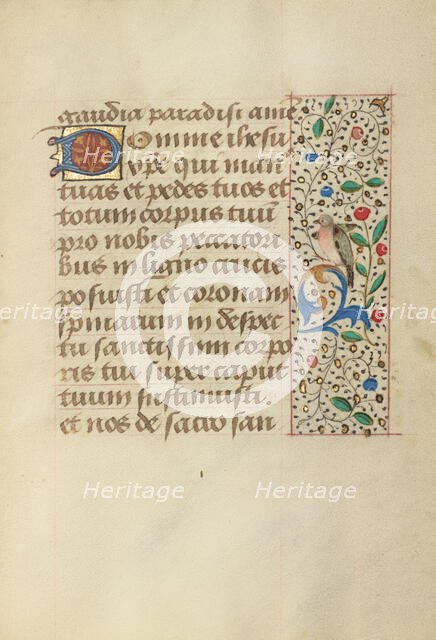 gaudia paradisi ame
Domine ihesu
xpe qui man
tuas et pedes tuos et
totum corpus tuū
pro nobis peccatori
bus in ligno crucis
posuisti et coronam
spinarum in despec
tu sanctissimi corpo
ris tui super caput
tuum sustinuisti.
et nos de sacro san
Heritage Heritage Heritage
Heritage Heritage Heritage
Heritage Heritage